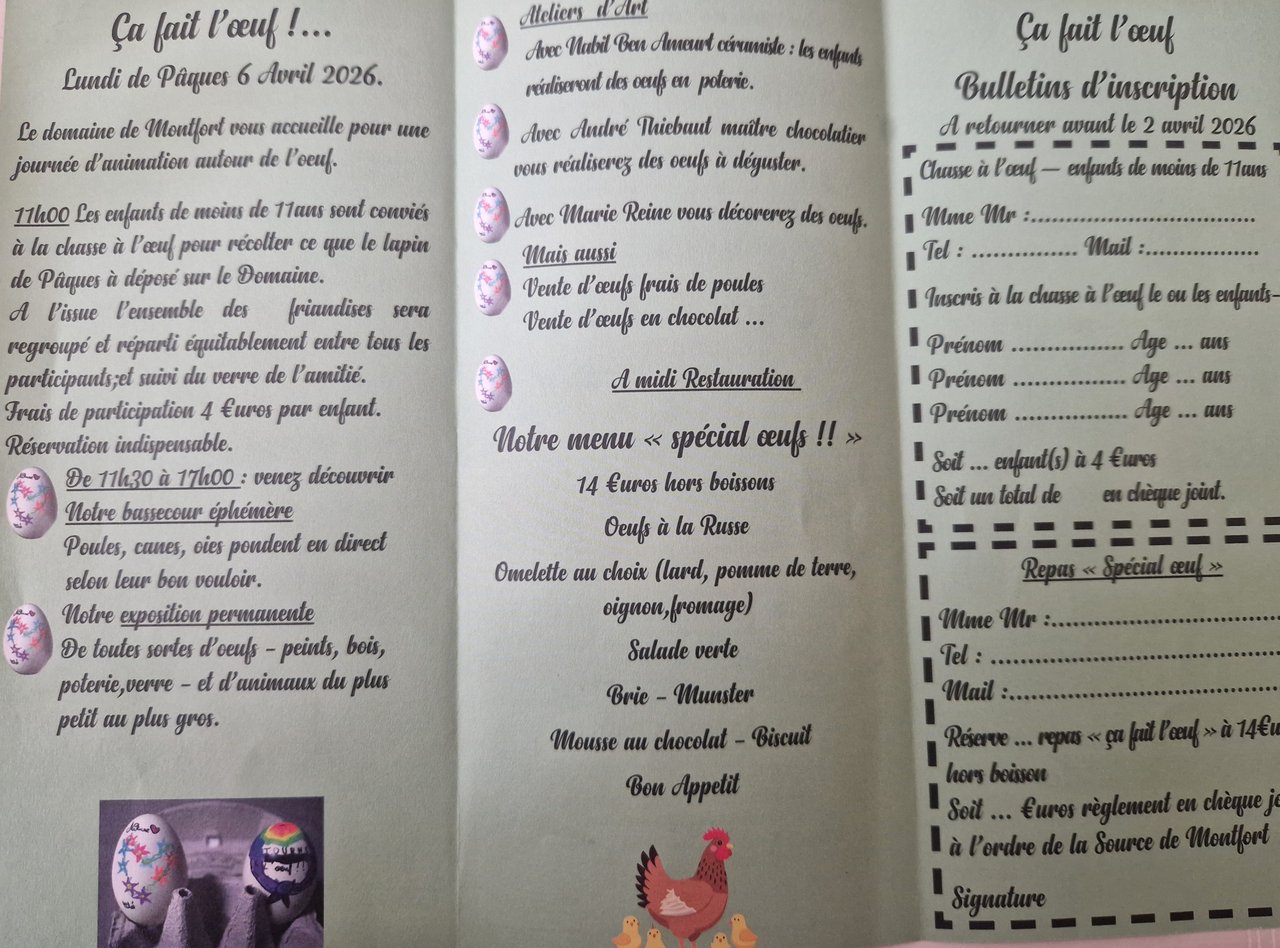 Ça fait l'œuf !...
Lundi de Pâques 6 Avril 2026.
Le domaine de Montfort vous accueille pour une
journée d'animation autour de l'oeuf.
11h00 Les enfants de moins de 11ans sont conviés
à la chasse à l'œuf pour récolter ce que le lapin
de Pâques à déposé sur le Domaine.
A l'issue l'ensemble des friandises sera
regroupé et réparti équitablement entre tous les
participants;et suivi du verre de l'amitié.
Frais de participation 4 €uros par enfant.
Réservation indispensable.
De 11h30 à 17h00 : venez découvrir
Notre bassecour éphémère
Poules, canes, oies pondent en direct
selon leur bon vouloir.
Notre exposition permanente
De toutes sortes d'oeufs – peints, bois,
poterie,verre – et d'animaux du plus
petit au plus gros.
Ateliers d'Art
Avec Nabil Ben Ameurt céramiste : les enfants
réaliseront des oeufs en poterie.
Avec André Thiebaut maître chocolatier
vous réaliserez des oeufs à déguster.
Avec Marie Reine vous décorerez des oeufs.
Mais aussi
Vente d'œufs frais de poules
Vente d'œufs en chocolat ...
A midi Restauration
Notre menu « spécial œufs !! »
14 €uros hors boissons
Oeufs à la Russe
Omelette au choix (lard, pomme de terre,
oignon,fromage)
Salade verte
Brie – Munster
Mousse au chocolat – Biscuit
Bon Appetit
Ça fait l'œuf
Bulletins d'inscription
A retourner avant le 2 avril 2026
Chasse à l'œuf — enfants de moins de 11ans
Mme Mr :....................................
Tel : ................ Mail :.................
Inscris à la chasse à l'œuf le ou les enfants-
Prénom ................. Age ... ans
Prénom ................. Age ... ans
Prénom ................. Age ... ans
Soit ... enfant(s) à 4 €uros
Soit un total de en chèque joint.
Repas « Spécial œuf »
Mme Mr :....................................
Tel : ............................................
Mail :..........................................
Réserve ... repas « ça fait l'œuf » à 14€u
hors boisson
Soit ... €uros règlement en chèque jo
à l'ordre de la Source de Montfort
Signature